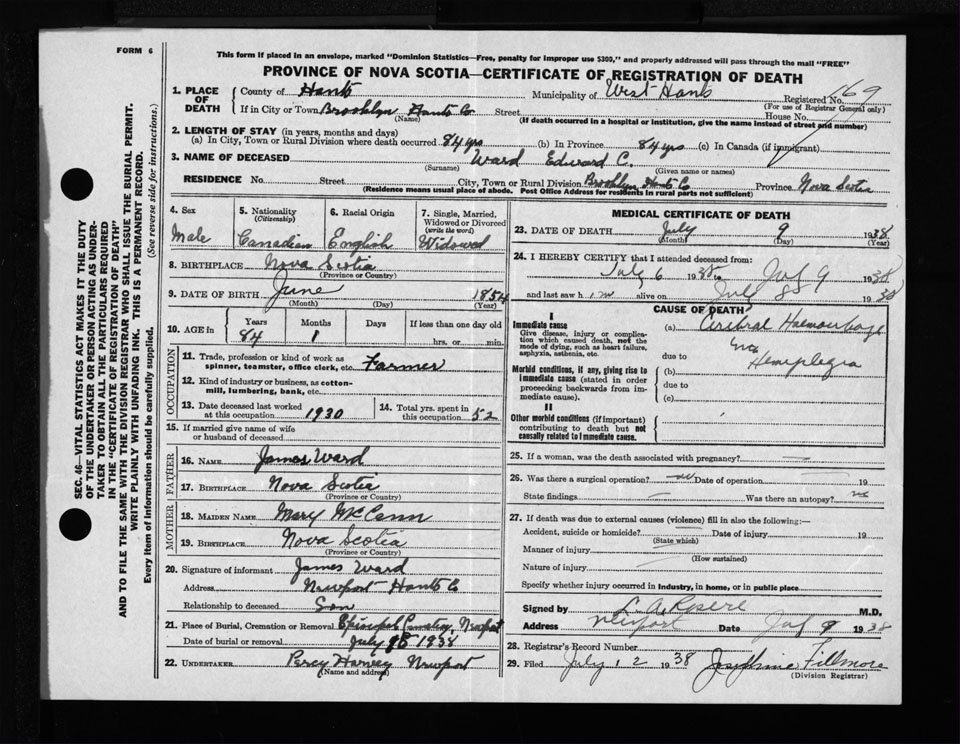 FORM 6
This form if placed in an envelope, marked "Dominion Statistics—Free, penalty for improper use $300," and properly addressed will pass through the mail "FREE"
PROVINCE OF NOVA SCOTIA—CERTIFICATE OF REGISTRATION OF DEATH
1. PLACE OF DEATH
County of Hants Municipality of West Hants
Registered No. 169
(For use of Registrar General only)
If in City or Town Brooklyn Hants Co Street House No.
(Name) (If death occurred in a hospital or institution, give the name instead of street and number)
2. LENGTH OF STAY (in years, months and days)
(a) In City, Town or Rural Division where death occurred 84 yrs (b) In Province 84 yrs (c) In Canada (if immigrant)
3. NAME OF DECEASED Ward Edward C.
(Surname) (Given name or names)
RESIDENCE No. Street City, Town or Rural Division Brooklyn Hants Co Province Nova Scotia
(Residence means usual place of abode. Post Office Address for residents in rural parts not sufficient)
4. Sex Male
5. Nationality (Citizenship) Canadian
6. Racial Origin English
7. Single, Married, Widowed or Divorced (write the word) Widowed
8. BIRTHPLACE Nova Scotia
(Province or Country)
9. DATE OF BIRTH June 1854
(Month) (Day) (Year)
10. AGE in Years Months Days If less than one day old
84 1 hrs. or min.
OCCUPATION
11. Trade, profession or kind of work as spinner, teamster, office clerk, etc. Farmer
12. Kind of industry or business, as cotton-mill, lumbering, bank, etc.
13. Date deceased last worked at this occupation 1930
14. Total yrs. spent in this occupation 52
15. If married give name of wife or husband of deceased
FATHER
16. NAME James Ward
17. BIRTHPLACE Nova Scotia
(Province or Country)
MOTHER
18. MAIDEN NAME Mary McCann
19. BIRTHPLACE Nova Scotia
(Province or Country)
20. Signature of informant James Ward
Address Newport Hants Co
Relationship to deceased Son
21. Place of Burial, Cremation or Removal Episcopal Cemetery, Newport
Date of burial or removal July 1938
22. UNDERTAKER Percy Harvey Newport
(Name and address)
MEDICAL CERTIFICATE OF DEATH
23. DATE OF DEATH July 9 1938
(Month) (Day) (Year)
24. I HEREBY CERTIFY that I attended deceased from:
July 6 1938 to July 9 1938
and last saw him alive on July 8 1938
CAUSE OF DEATH
I
Immediate cause
Give disease, injury or complication which caused death, not the mode of dying, such as heart failure, asphyxia, asthenia, etc.
(a) Cerebral Haemorrhage
due to
Morbid conditions, if any, giving rise to immediate cause (stated in order proceeding backwards from immediate cause).
(b) Hemiplegia
due to
(c)
II
Other morbid conditions (if important) contributing to death but not causally related to immediate cause.
25. If a woman, was the death associated with pregnancy?
26. Was there a surgical operation? no Date of operation 19
State findings Was there an autopsy? no
27. If death was due to external causes (violence) fill in also the following:—
Accident, suicide or homicide? Date of injury 19
(State which)
Manner of injury
(How sustained)
Nature of injury
Specify whether injury occurred in industry, in home, or in public place
Signed by M.D.
Address Newport Date July 9 1938
28. Registrar's Record Number
29. Filed July 12 1938 Josephine Fillmore
(Division Registrar)
SEC. 46—VITAL STATISTICS ACT MAKES IT THE DUTY
OF THE UNDERTAKER OR PERSON ACTING AS UNDER-
TAKER TO OBTAIN ALL THE PARTICULARS REQUIRED
IN THE "CERTIFICATE OF REGISTRATION OF DEATH"
AND TO FILE THE SAME WITH THE DIVISION REGISTRAR WHO SHALL ISSUE THE BURIAL PERMIT.
WRITE PLAINLY WITH UNFADING INK. THIS IS A PERMANENT RECORD.
Every item of information should be carefully supplied. (See reverse side for instructions.)